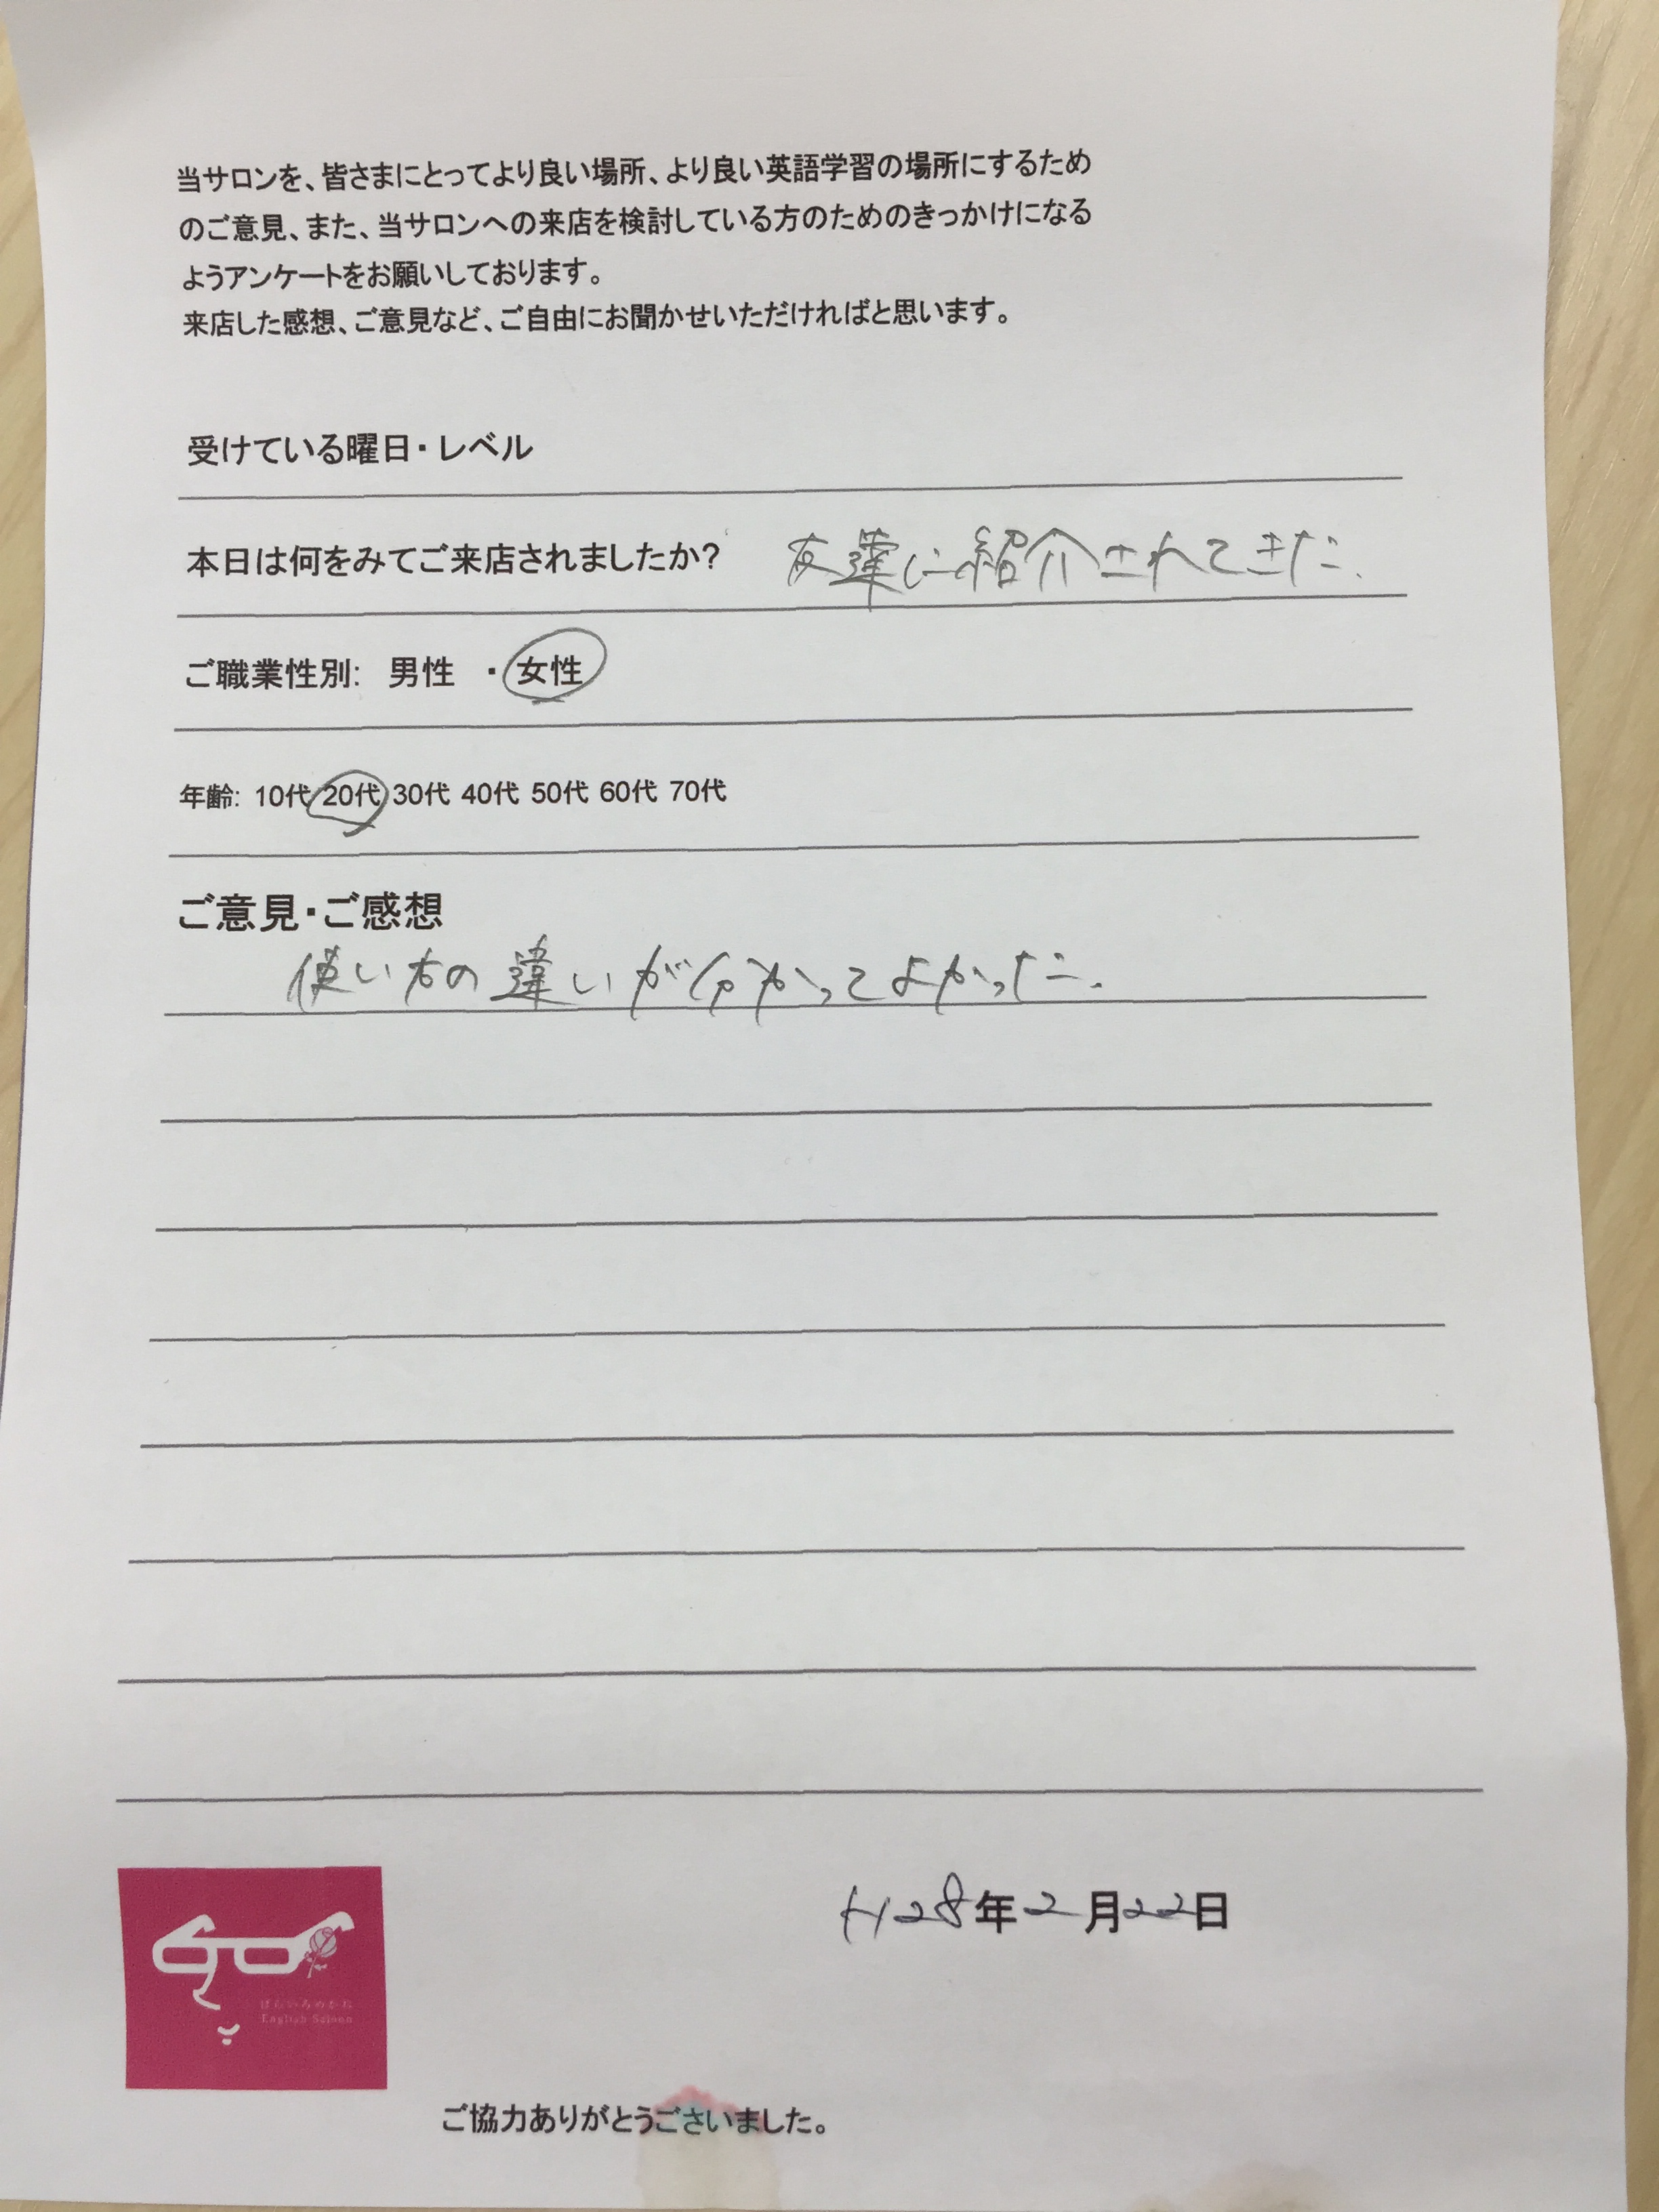 当サロンを、皆さまにとってより良い場所、より良い英語学習の場所にするため
のご意見、また、当サロンへの来店を検討している方のためのきっかけになる
ようアンケートをお願いしております。
来店した感想、ご意見など、ご自由にお聞かせいただければと思います。
受けている曜日・レベル
本日は何をみてご来店されましたか? 友達に紹介されてきた.
ご職業性別: 男性 ・ 女性
年齢: 10代 20代 30代 40代 50代 60代 70代
ご意見・ご感想
使い方の違いが分かってよかった.
H28年2月22日
ばらいろのかお
English Salonn
ご協力ありがとうございました。